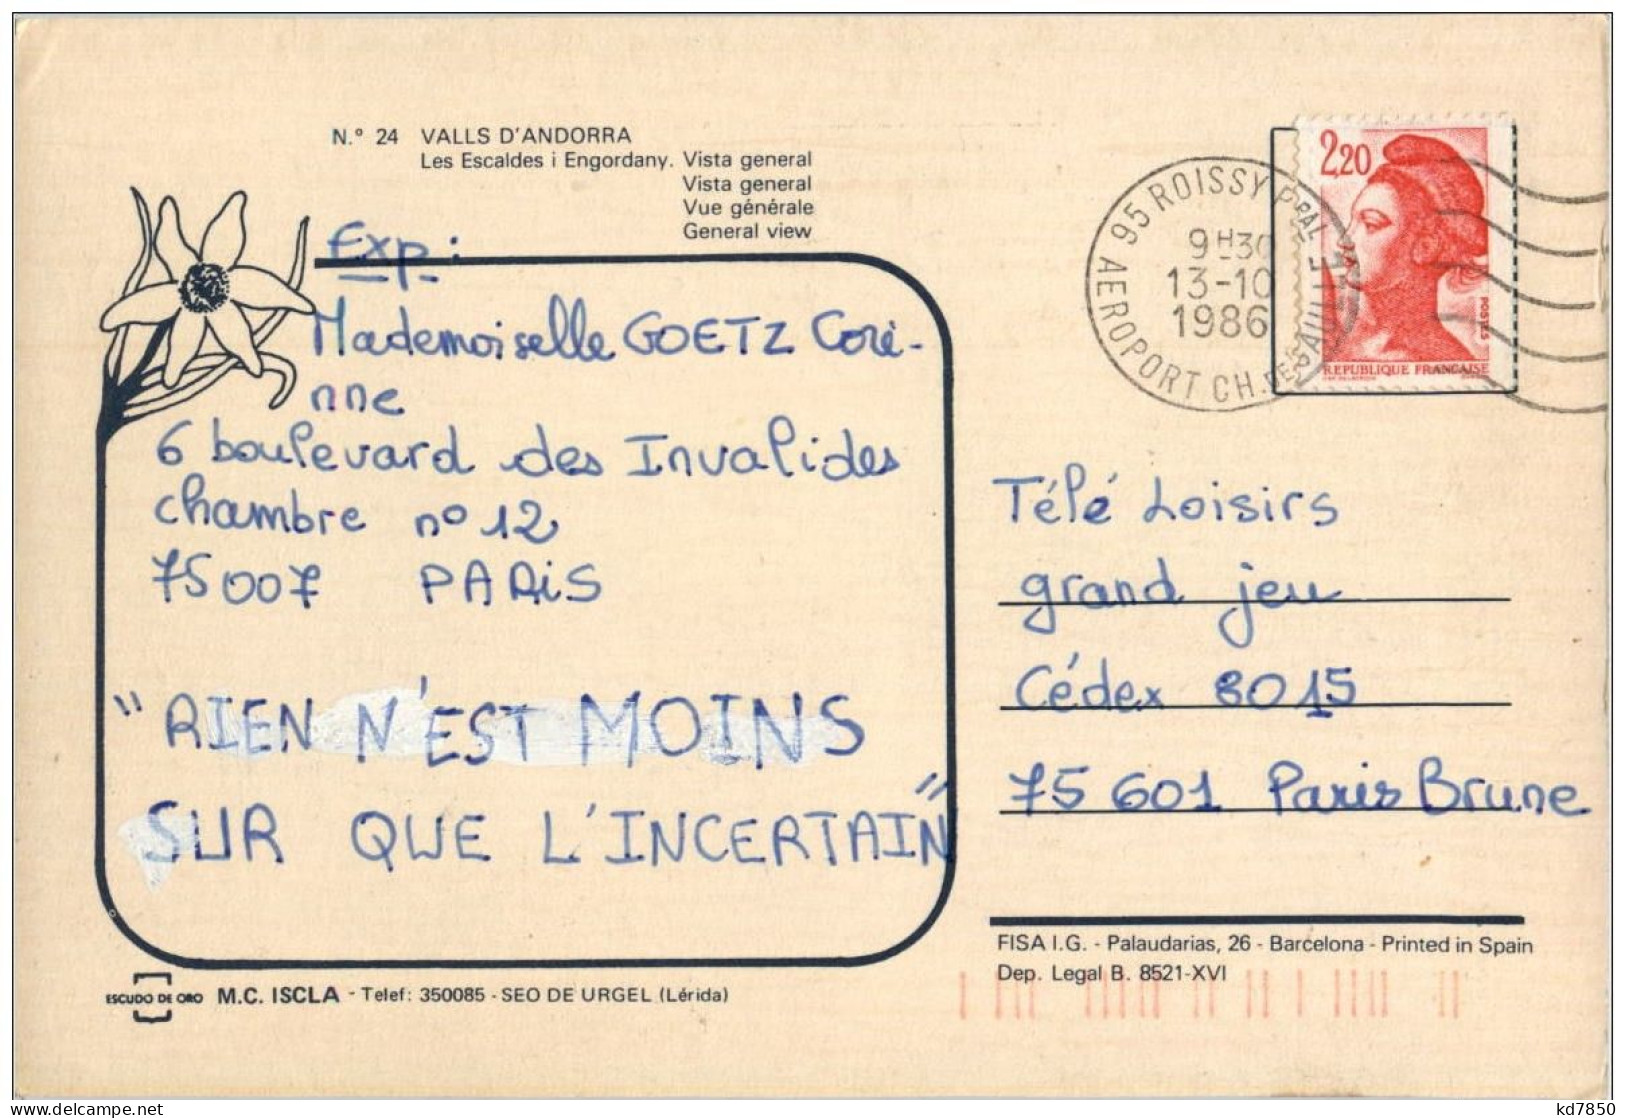 N.º 24 VALLS D'ANDORRA
Les Escaldes i Engordany. Vista general
Vista general
Vue générale
General view
Exp :
Mademoiselle GOETZ Cori-
nne
6 boulevard des Invalides
chambre nº 12
75007 PARIS
"RIEN N'EST MOINS
SUR QUE L'INCERTAIN"
95 ROISSY PPAL
AEROPORT CH. DE GAULLE
9H30
13-10
1986
2,20
POSTES
REPUBLIQUE FRANÇAISE
Télé Loisirs
grand jeu
Cédex 8015
75 601 Paris Brune
FISA I.G. - Palaudarias, 26 - Barcelona - Printed in Spain
Dep. Legal B. 8521-XVI
ESCUDO DE ORO M.C. ISCLA - Telef: 350085 - SEO DE URGEL (Lérida)
kd7850